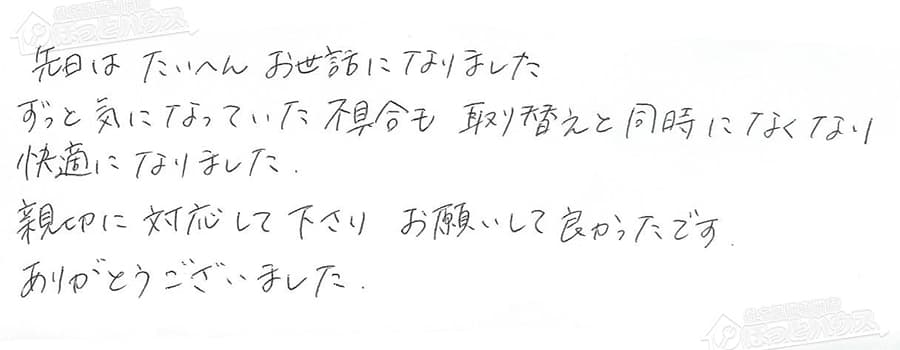 先日は たいへん お世話になりました
ずっと気になっていた不具合も 取り替えと同時になくなり
快適になりました.
親切に対応して下さり お願いして良かったです.
ありがとうございました.
ほっとハウス
ほっとハウス